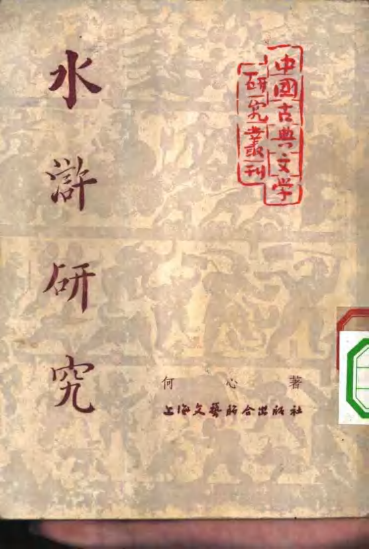 中國古典文学
研究叢刊
水滸研究
何心著
上海文藝联合出版社